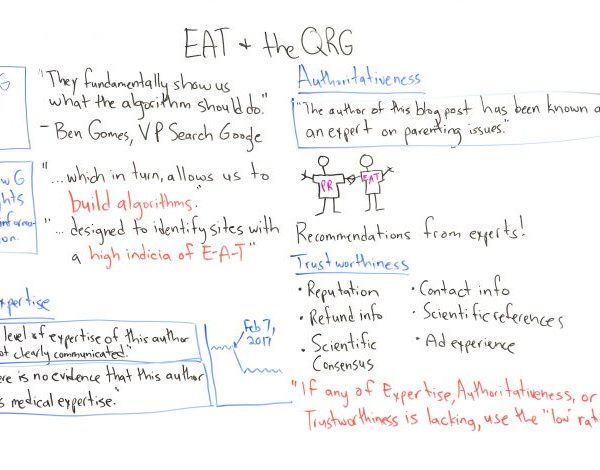 EAT + the QRG
G
"They fundamentally show us
what the algorithm should do."
- Ben Gomes, VP Search Google
w G
ghts
informa-
ion.
"...which in turn, allows us to
build algorithms."
"... designed to identify sites with
a high indicia of E-A-T"
xpertise
level of expertise of this author
ot clearly communicated."
ere is no evidence that this author
s medical expertise."
Feb 7,
2017
Authoritativeness
"The author of this blog post has been known a
an expert on parenting issues."
PR EAT
Recommendations from experts!
Trustworthiness
• Reputation
• Refund info
• Scientific
Consensus
• Contact info
• Scientific references
• Ad experience
"If any of Expertise, Authoritativeness, or
Trustworthiness is lacking, use the "low" rati